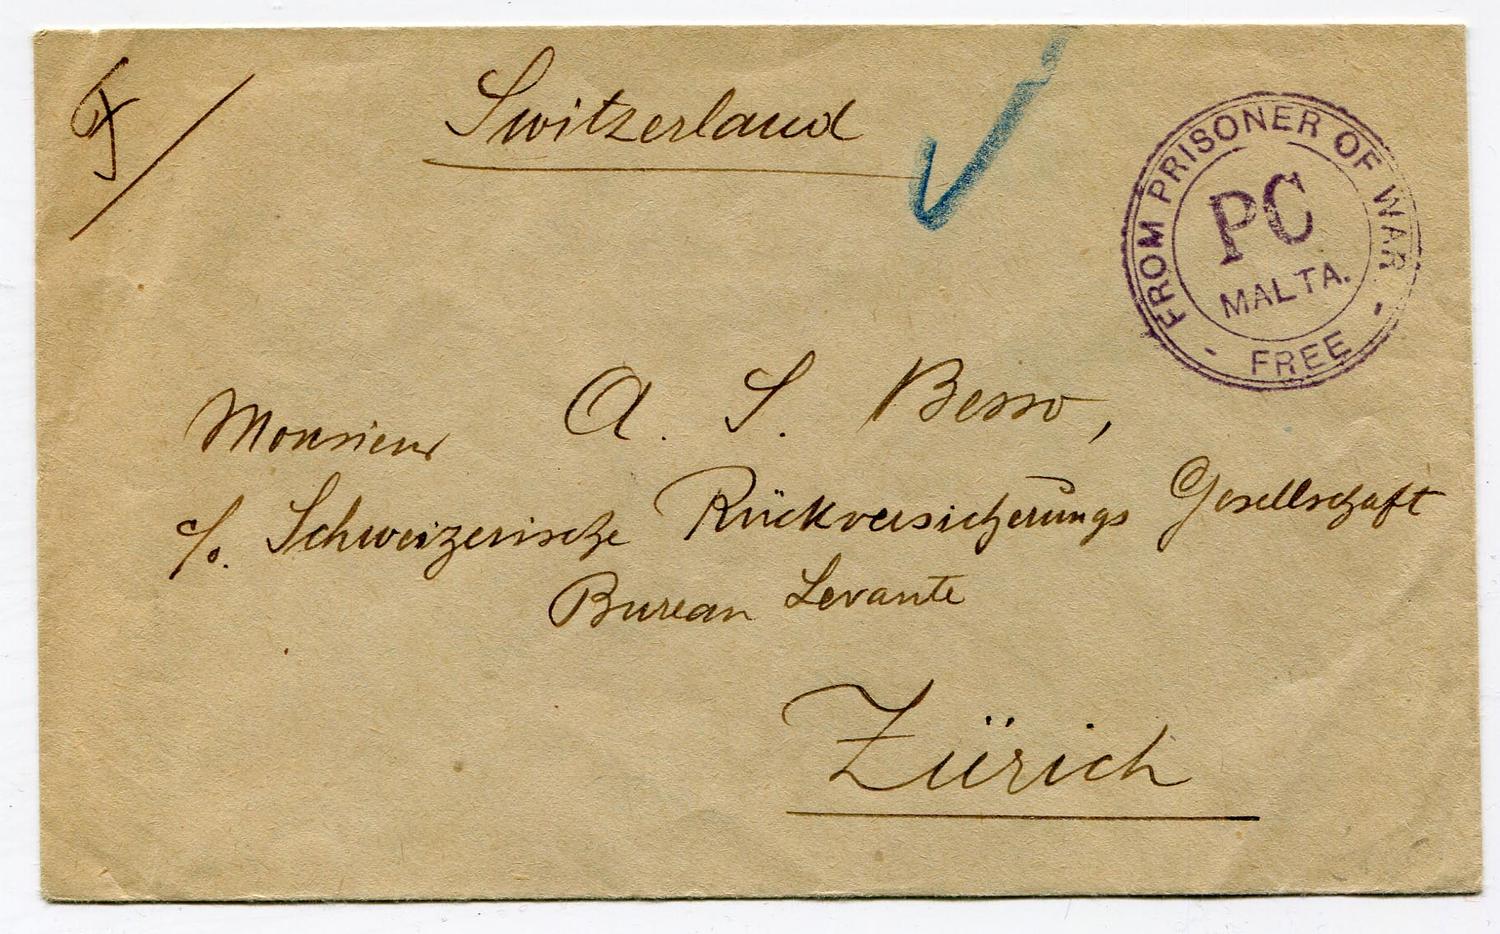 F/
Switzerland
FROM PRISONER OF WAR
PC
MALTA.
- FREE -
Monsieur A. S. Besso,
c/o. Schweizerische Rückversicherungs Gesellschaft
Bureau Levante
Zürich